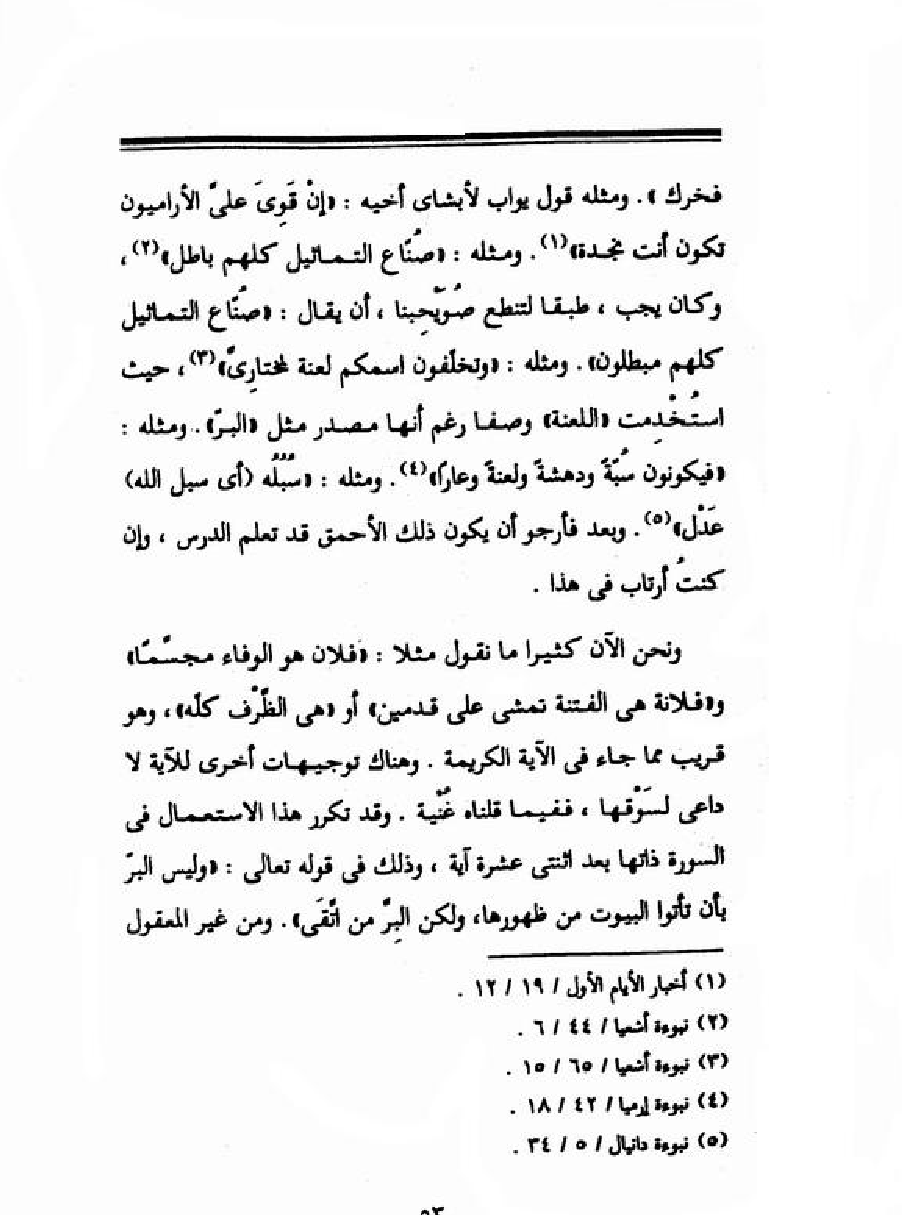 فخرك » . ومثله قول يواب لأبشاى أخيه : «إنْ قَوِىَ علىَّ الأراميون
تكون أنت نجدة»(١) . ومثله : «صُنّاع التماثيل كلهم باطل»(٢) ،
وكان يجب ، طبقا لتنطع صُوَيْحِبنا ، أن يقال : «صنّاع التماثيل
كلهم مبطلون» . ومثله : «وتخلّفون اسمكم لعنة لمختارِىَّ»(٣) ، حيث
استُخْدِمت «اللعنة» وصفا رغم أنها مصدر مثل «البرّ» . ومثله :
«فيكونون سُبّةً ودهشةً ولعنةً وعارًا»(٤) . ومثله : «سُبُلُه (أى سبل الله)
عَدْل»(٥) . وبعد فأرجو أن يكون ذلك الأحمق قد تعلم الدرس ، وإن
كنتُ أرتاب فى هذا .
ونحن الآن كثيرا ما نقول مثلا : «فلان هو الوفاء مجسَّمًا»
و«فلانة هى الفتنة تمشى على قدمين» أو «هى الظَّرْف كلّه» ، وهو
قريب مما جاء فى الآية الكريمة . وهناك توجيهات أخرى للآية لا
داعى لسَوْقها ، ففيما قلناه غُنْية . وقد تكرر هذا الاستعمال فى
السورة ذاتها بعد اثنتى عشرة آية ، وذلك فى قوله تعالى : «وليس البرّ
بأن تأتوا البيوت من ظهورها، ولكن البِرَّ من اتَّقَى» . ومن غير المعقول
(١) أخبار الأيام الأول / ١٩ / ١٢ .
(٢) نبوءة أشعيا / ٤٤ / ٦ .
(٣) نبوءة أشعيا / ٦٥ / ١٥ .
(٤) نبوءة إرميا / ٤٢ / ١٨ .
(٥) نبوءة دانيال / ٥ / ٣٤ .
٥٣